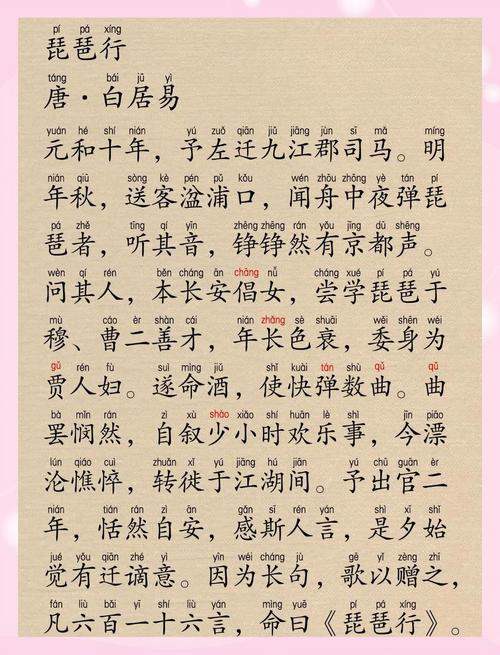 pí pá xíng
琵琶行
táng bái jū yì
唐·白居易
yuán hé shí nián yú zuǒ qiān jiǔ jiāng jùn sī mǎ míng
元和十年，予左迁九江郡司马。明
nián qiū sòng kè pén pǔ kǒu wén zhōu zhōng yè tán pí
年秋，送客湓浦口，闻舟中夜弹琵
pá zhě tīng qí yīn zhēng zhēng rán yǒu jīng dū shēng
琶者，听其音，铮铮然有京都声。
wèn qí rén běn cháng ān chāng nǚ cháng xué pí pá yú
问其人，本长安倡女，尝学琵琶于
mù cáo èr shàn cái nián zhǎng sè shuāi wěi shēn wéi
穆、曹二善才，年长色衰，委身为
gǔ rén fù suì mìng jiǔ shǐ kuài tán shù qǔ qǔ
贾人妇。遂命酒，使快弹数曲。曲
bà mǐn rán zì xù shào xiǎo shí huān lè shì jīn piāo
罢悯然，自叙少小时欢乐事，今漂
lún qiáo cuì zhuǎn xǐ yú jiāng hú jiān yú chū guān èr
沦憔悴，转徙于江湖间。予出官二
nián tián rán zì ān gǎn sī rén yán shì xī shǐ
年，恬然自安，感斯人言，是夕始
jué yǒu qiān zhé yì yīn wéi cháng jù gē yǐ zèng zhī
觉有迁谪意。因为长句，歌以赠之，
fán liù bǎi yī shí liù yán mìng yuē pí pá xíng
凡六百一十六言，命曰《琵琶行》。